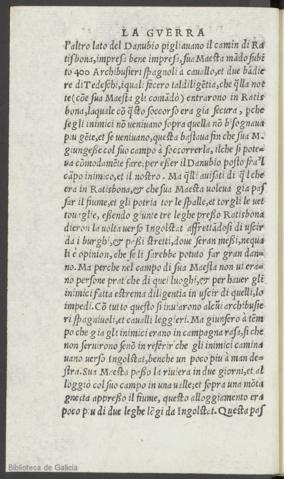 LA GVERRA
l'altro lato del Danubio pigliauano il camin di Ra
tisbona, impresa bene impresa, sua Maesta mādo subi
to 400 Archibusieri spagnoli à cauallo, et due bādie
re di Tedeschi, iquali fecero tal diligētia, che q̄lla not
te (cōe sua Maesta gli comādò) entrarono in Ratis
bona, laquale cō q̄sto soccorso era gia secura, pche
se gli inimici nō veniuano sopra quella nō bisognaua
piu gēte, et se veniuano, questa bastaua fin che sua M.
giungesse col suo campo à soccorrerla, ilche si pote=
ua cōmodamēte fare, per esser il Danubio posto fra'l
cāpo inimico, et il nostro. Ma q̄lli auisati di q̄l che
era in Ratisbona, & che sua Maesta uoleua gia pas
sar il fiume, et gli potria tor le spalle, et torgli le vet
touaglie, essendo giunte tre leghe presso Ratisbona
dieron la uolta uerso Ingolstat affretiādosi di uscir
da i burghi, & passi stretti, doue seran messi, nequa
li è opinion, che se li sarebbe potuto far gran dan=
no. Ma perche nel campo di sua Maesta non ui era=
no persone pratiche di quei luoghi, & per hauer gli
inimici fatta estrema diligentia in uscir di quelli, lo
impedi. Cō tutto questo si inuiarono alcūi archibusie
ri spagniuoli, et caualli leggieri. Ma giunsero à tēm
po che gia gli inimici erano in campagna rasa, si che
non seruirono senō in referir che gli inimici camina
uano uerso Ingolstat, benche un poco piu à man de=
stra. Sua Maesta passo la riuiera in due giorni, et al
loggiò col suo campo in una ualle, et sopra una mōta
gneita appresso il fiume, questo alloggiamento era
poco piu di due leghe lōgi da Ingolstat. Questa pas
Biblioteca de Galicia